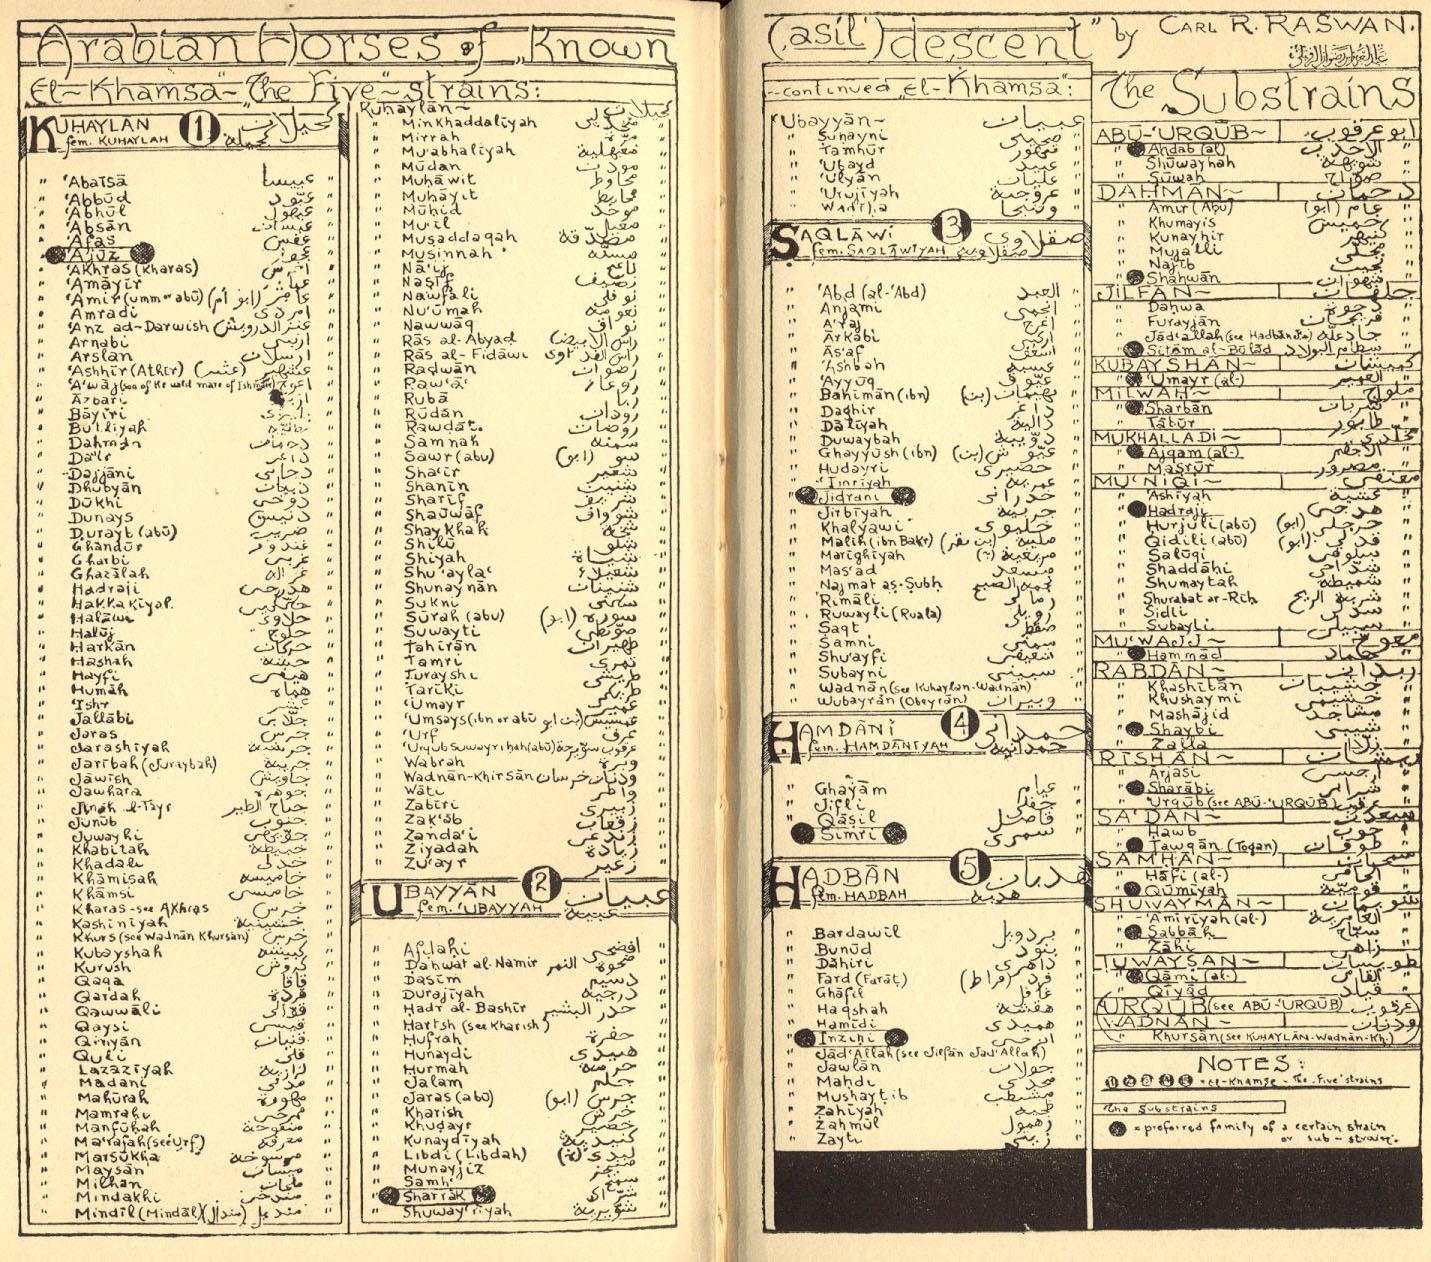 Arabian Horses of "Known
El-Khamsa - The Five - strains:
KUHAYLAN 1 كحيلان
fem. KUHAYLAH كحيلة
" 'Abaīsā عبيسا "
" 'Abbūd عبّود "
" 'Abhūl عبهول "
" 'Absān عبسان "
" 'Afas عفس "
'Ajūz عجوز "
" 'Akhras (Kharas) اخرس "
" 'Amāyir "
" 'Amir (umm or abū) (ابو أم) عامر "
" Amradi امردي "
" 'Anz ad-Darwish عنز الدرويش "
" Arnabi ارنبي "
" Arslān ارسلان "
" 'Ashhīr (Athīr) "
" A'wāj (son of the wild mare of Ishmael) اعوج "
" Azbari "
" Bāyiri "
" Bulliyah "
" Dahmān دحمان "
" Da'ir داعر "
" Dajjāni دجاني "
" Dhubyān ذبيان "
" Dūkhi دوخي "
" Dunays دنيس "
" Durayb (abū) ضريب "
" Ghandūr غندور "
" Gharbi غربي "
" Ghazālah غزاله "
" Hadraji هدرجي "
" Hakkakiyat "
" Halāwi حلاوي "
" Halūj حلوج "
" Harkān حركان "
" Hashah "
" Hayfi هيفي "
" Humāh "
" 'Ishr عشر "
" Jallābi جلابي "
" Jaras جرس "
" Jarashiyah جرشية "
" Jarībah (Juraybah) جريبة "
" Jāwish جاويش "
" Jawhara جوهرة "
" Jināh at-Tayr جناح الطير "
" Junūb جنوب "
" Juwayhi "
" Khabitah خبيطة "
" Khadali خدلي "
" Khāmisah خامسه "
" Khāmsi خامسي "
" Kharas - see Akhras خرس "
" Kashiniyah "
" Khurs (see Wadnān Khursān) خرس "
" Kubayshah كبيشه "
" Kurush كروش "
" Qaqa قاقا "
" Qardah قردة "
" Qawwāli قوّالي "
" Qaysi قيسي "
" Qinyān قنيان "
" Quli قلي "
" Lazāziyah لزازية "
" Madani مدني "
" Mahūrah مهورة "
" Mamrahi ممرحي "
" Manfūhah منفوحة "
" Ma'rafah (see Urf) معرفه "
" Marsūkha مرسوخه "
" Maysān ميسان "
" Milhan ملحان "
" Mindakhi مندخي "
" Mindīl (Mindāl) (مندال) منديل "
Kuhaylān ~ كحيلان
" Minkhaddaliyah "
" Mirrah مرّة "
" Mu'abhaliyah معبهلية "
" Mūdan مودن "
" Muhāwit محاوط "
" Muhāyit محايط "
" Mūhid موحد "
" Mu'il "
" Muṣaddaqah مصدّقة "
" Musinnah مسنّه "
" Nā'ij ناعج "
" Naṣīf نصيف "
" Nawfali نوفلي "
" Nu'ūmah نعومه "
" Nawwāq نواق "
" Rās al-Abyad راس الابيض "
" Rās al-Fidāwi راس الفداوي "
" Raḍwān رضوان "
" Raw'ā' روعاء "
" Rubā ربا "
" Rūdān رودان "
" Rawdāt. روضات "
" Samnah سمنه "
" Sawr (abū) (ابو) "
" Sha'ir شعير "
" Shanīn شنين "
" Sharīf شريف "
" Shawwāf شوواف "
" Shaykhah شيخة "
" Shilū شلو "
" Shiyah شياة "
" Shu'ayla' شعيلاء "
" Shunaynān شنينان "
" Sukni سكني "
" Sūrah (abu) (ابو) سورة "
" Suwayti صويطي "
" Tahirān "
" Tamri تمري "
" Turayshi طريشي "
" Tariki طريكي "
" 'Umayr عمير "
" 'Umsays (ibn or abū) بن ابو عمسيس "
" 'Urf عرف "
" 'Urqūb Suwayrihah (abū) "
" Wabrah وبرة "
" Wadnān-Khirsān ودنان خرسان "
" Wāti واطي "
" Zabīri زبيري "
" Zak'āb زقعاب "
" Zanda'i زندعي "
" Ziyadah زيادة "
" Zu'ayr زعير "
'UBAYYAN 2 عبيان
fem. 'UBAYYAH عبية
" Afdahi افضحي "
" Dahwat al-Namir ضحوة النمر "
" Dasīm دسيم "
" Durajīyah درجية "
" Hadr al-Bashīr حدر البشير "
" Harish (see Kharish) "
" Hufrah حفرة "
" Hunaydi هنيدي "
" Hurmah حرمه "
" Jalam جلم "
" Jaras (abū) جرس (ابو) "
" Kharish خرش "
" Khuḍayr خضير "
" Kunaydīyah كنيدية "
" Libdi (Libdah) لبدي (ة) "
" Munayjiz منيجز "
" Samh سمح "
Sharrāk شرّاك
" Shuway'rīyah شويرية "
(asil') descent" by CARL R. RASWAN.
--continued "El-Khamsa":
The Substrains
'Ubayyān ~ عبيان
" Suhayni صحيني "
" Tamhūr تمهور "
" 'Ubayd عبيد "
" 'Ulyān عليان "
" 'Urujīyah عروجية "
" Wadīḥa "
SAQLĀWI 3 صقلاوي
fem. SAQLĀWIYAH صقلاوية
" 'Abd (al-'Abd) العبد "
" Anjami انجمي "
" A'raj اعرج "
" Arkābi اركبي "
" As'af اسعف "
" 'Ashbah عشبه "
" 'Ayyūq عيّوق "
" Bahimān (ibn) (بن) بهيمان "
" Daghir داغر "
" Dālīyah دالية "
" Duwaybah دويبه "
" Ghayyūsh (ibn) (بن) غيّوش "
" Hudayri حضيري "
" 'Imriyah عمريه "
Jidrani جدراني
" Jirbīyah جربية "
" Khalyawi خليوي "
" Malih (ibn Bakr) "
" Marighīyah مريغية "
" Mas'ad مسعد "
" Najmat aṣ-Ṣubh نجمة الصبح "
" Rimāli رمالي "
" Ruwayli (Ruala) رويلي "
" Saqt سقط "
" Samni سمني "
" Shu'ayfi شعيفي "
" Subayni سبيني "
" Wadnān (see Kuhaylan-Wadnān)
" Wubayrān (Obeyrān) وبيران "
HAMDĀNI 4 حمداني
fem. HAMDĀNIYAH حمدانية
" Ghayām غيام "
" Jifli جفلي "
" Qāṣil قاصل "
Simri سمري
HADBĀN 5 هدبان
fem. HADBAH هدبه
" Bardawīl بردويل "
" Bunūd بنود "
" Dāhiri داهري "
" Fard (Farāt) فرد (فراط) "
" Ghāfil غافل "
" Haqshah هقشه "
" Hamīdi هميدي "
Inzihi انزحي
" Jād'Allah (see Jilfān Jad'Allah) "
" Jawlān جولان "
" Mahdi مهدي "
" Mushayṭib مشيطب "
" Zahīyah "
" Zahmūl زهمول "
" Zayti زيتي "
ABŪ-'URQŪB~ ابو عرقوب
" Ahdab (al) الاحدب "
" Shūwayhah شويهة "
" Sūwah "
DAHMĀN~ دحمان
" Amir (Abū) عامر (ابو) "
" Khumayis خميس "
" Kunayhir كنيهر "
" Mujalli مجلي "
" Najīb نجيب "
" Shahwān شهوان "
JILFĀN~ جلفان
" Dahwa دحوة "
" Furayjān فريجان "
" Jād'allah (see Hadbān etc) جاد عله "
" Sitām al-Būlād سطام البولاد "
KUBAYSHĀN~ كبيشان
" 'Umayr (al-) العمير "
MILWAH~ ملواح
" Sharbān شربان "
" Tābūr طابور "
MUKHALLADI~ مخلّدي
" Ajqam (al-) "
" Masrūr مصرور "
MU'NIQI~ معنقي
" 'Ashīyah عشيه "
" Hadraji هدرجي "
" Hurjūli (abū) (ابو) حرجلي "
" Qidili (abū) (ابو) قدلي "
" Salūqi سلوقي "
" Shaddāhi شداحي "
" Shumaytah شميطه "
" Shurabat ar-Rīh شربة الريح "
" Sidli سدلي "
" Subayli سبيلي "
MU'WAJJ~ معوج
" Hammād حماد "
RABDĀN~ ربدان
" Khashībān خشيبان "
" Khushaymi خشيمي "
" Mashājid "
" Shaybi شيبي "
" Zalla زلا "
RĪSHĀN~ ريشان
" Arjasi ارجسي "
" Sharābi شرابي "
" 'Urqūb (see ABŪ-'URQŪB) عرقوب "
SA'DĀN~ سعدان
" Hawb حوب "
" Tawqān (Toqan) طوقان "
SAMHĀN~ سمحان
" Hāfi (al-) الحافي "
" Qūmiyah قومية "
SHUWAYMĀN~ شويمان
" 'Amiriyah (al-) العامرية "
" Sabbāh سباح "
" Zāhi زاهي "
TUWAYSĀN~ طويسان
" Qāmi (al-) القامي "
" Qiyād قياد "
('URQŪB (see ABŪ-'URQŪB) عرقوب)
(WADNĀN~ ودنان)
" Khursān (see KUHAYLĀN-Wadnān-Kh.) "
NOTES:
1 2 3 4 5 = El-Khamsa - The Five strains
The Substrains
= preferred family of a certain strain
or sub-strain.